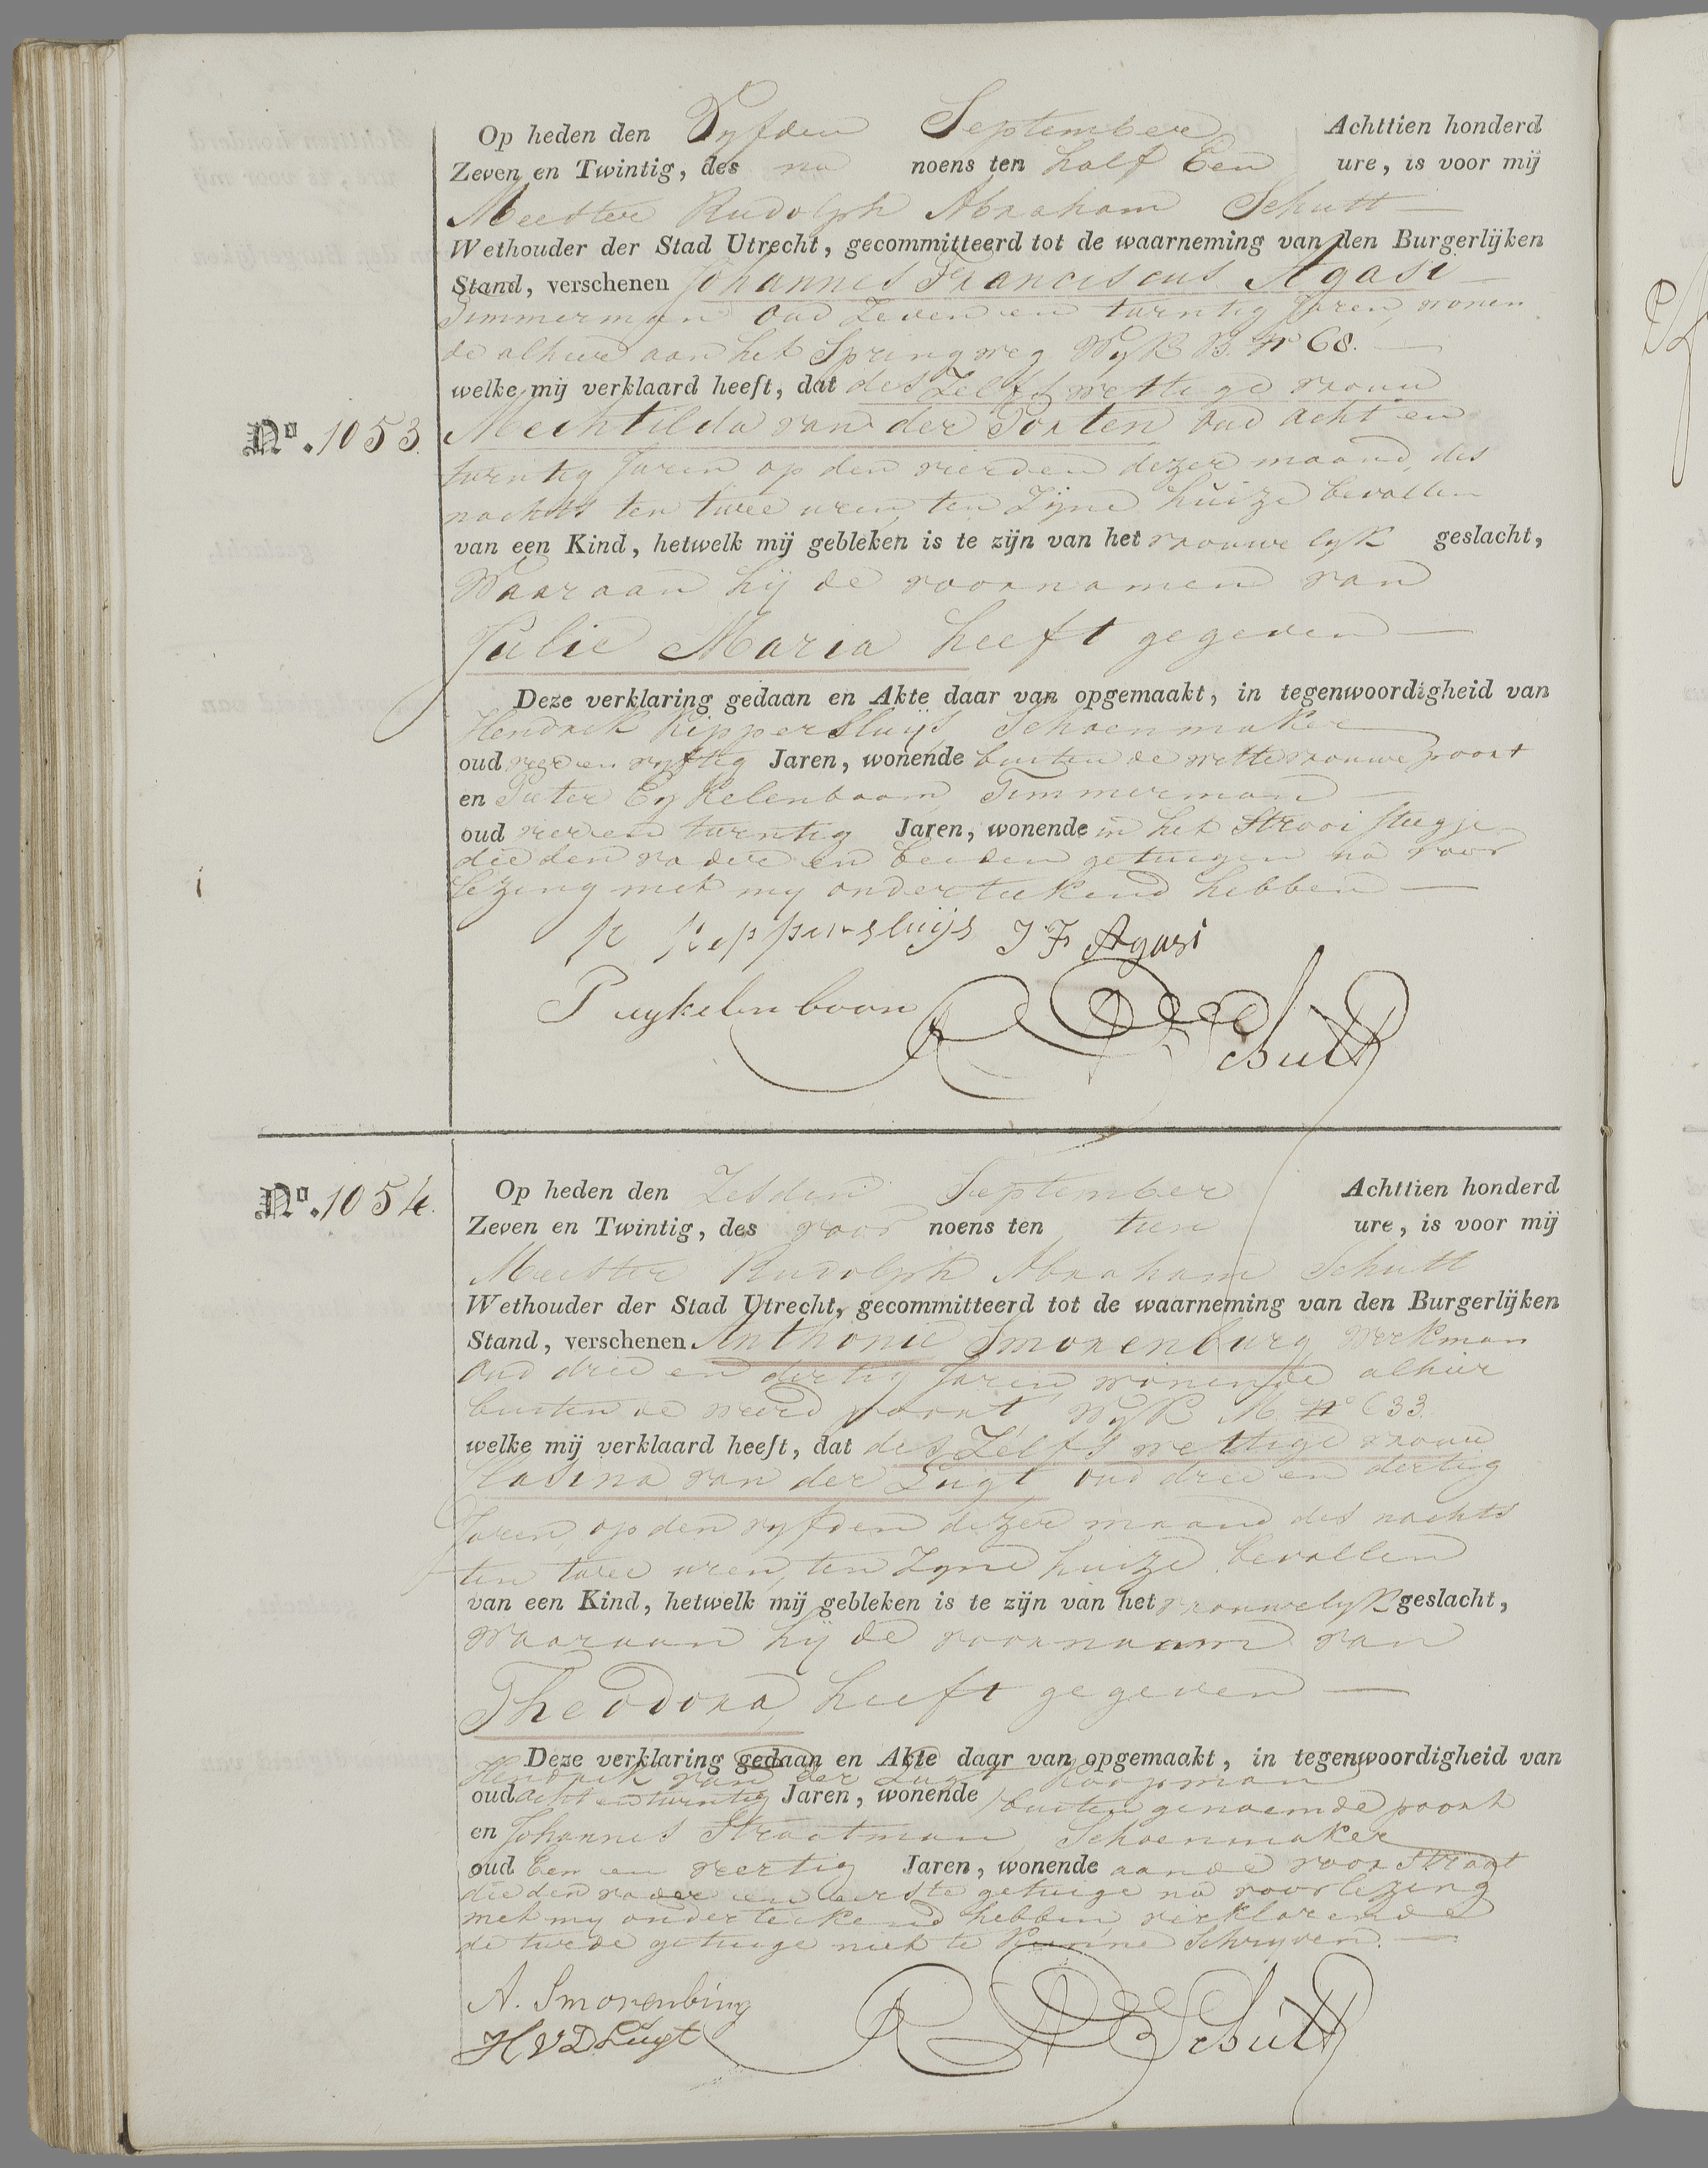 Op heden den Vyfden September Achttien honderd
Zeven en Twintig, des na noens ten half Een ure, is voor mij
Meester Rudolph Abraham Schutt
Wethouder der Stad Utrecht, gecommitteerd tot de waarneming van den Burgerlijken
Stand, verschenen Johannes Franciscus Agasi
Timmerman oud Zeven en twintig Jaren, wonen
de alhier aan het Springweg Wyk B. No 68.
welke mij verklaard heeft, dat deszelfs wettige vrouw
No. 1053. Mechtilda van der Porten oud acht en
twintig Jaren op den vierden dezer maand, des
nachts ten twee uren, ten Zijne huize bevallen
van een Kind, hetwelk mij gebleken is te zijn van het vrouwelyk geslacht,
Waaraan hij de voornamen van
Julie Maria heeft gegeven
Deze verklaring gedaan en Akte daar van opgemaakt, in tegenwoordigheid van
Hendrik Rippersluijs Schoenmaker
oud vier en vyftig Jaren, wonende buiten de witte vrouwe poort
en Pieter Eykelenboom Timmerman
oud vier en twintig Jaren, wonende in het Strooi steegje
die den vader en beiden getuigen na voor
lezing met my onderteekend hebben
Rippersluijs J F Agasi
P eykelenboom R A Schutt
No. 1054. Op heden den Zesden September Achttien honderd
Zeven en Twintig, des voor noens ten tien ure, is voor mij
Meester Rudolph Abraham Schutt
Wethouder der Stad Utrecht, gecommitteerd tot de waarneming van den Burgerlijken
Stand, verschenen Anthonie Smorenburg Werkman
oud drie en dertig Jaren wonende alhier
buiten de weerd poort Wyk M No 633.
welke mij verklaard heeft, dat deszelfs wettige vrouw
Clasina van der Lugt oud drie en dertig
Jaren, op den vyfden dezer maand des nachts
ten twee uren, ten Zyne huize bevallen
van een Kind, hetwelk mij gebleken is te zijn van het vrouwelyk geslacht,
Waaraan hij de voornaam van
Theodora, heeft gegeven
Deze verklaring gedaan en Akte daar van opgemaakt, in tegenwoordigheid van
Hendrik van der Lugt Koopman
oud acht en twintig Jaren, wonende buiten genoemde poort
en Johannes Straatman Schoenmaker
oud Een en veertig Jaren, wonende aan de voor Straat
die den vader en eerste getuige na voorlezing
met my onderteekend hebben verklarende
de twede getuige niet te kunne Schryven.
A. Smorenburg
H V D Lugt R A Schutt